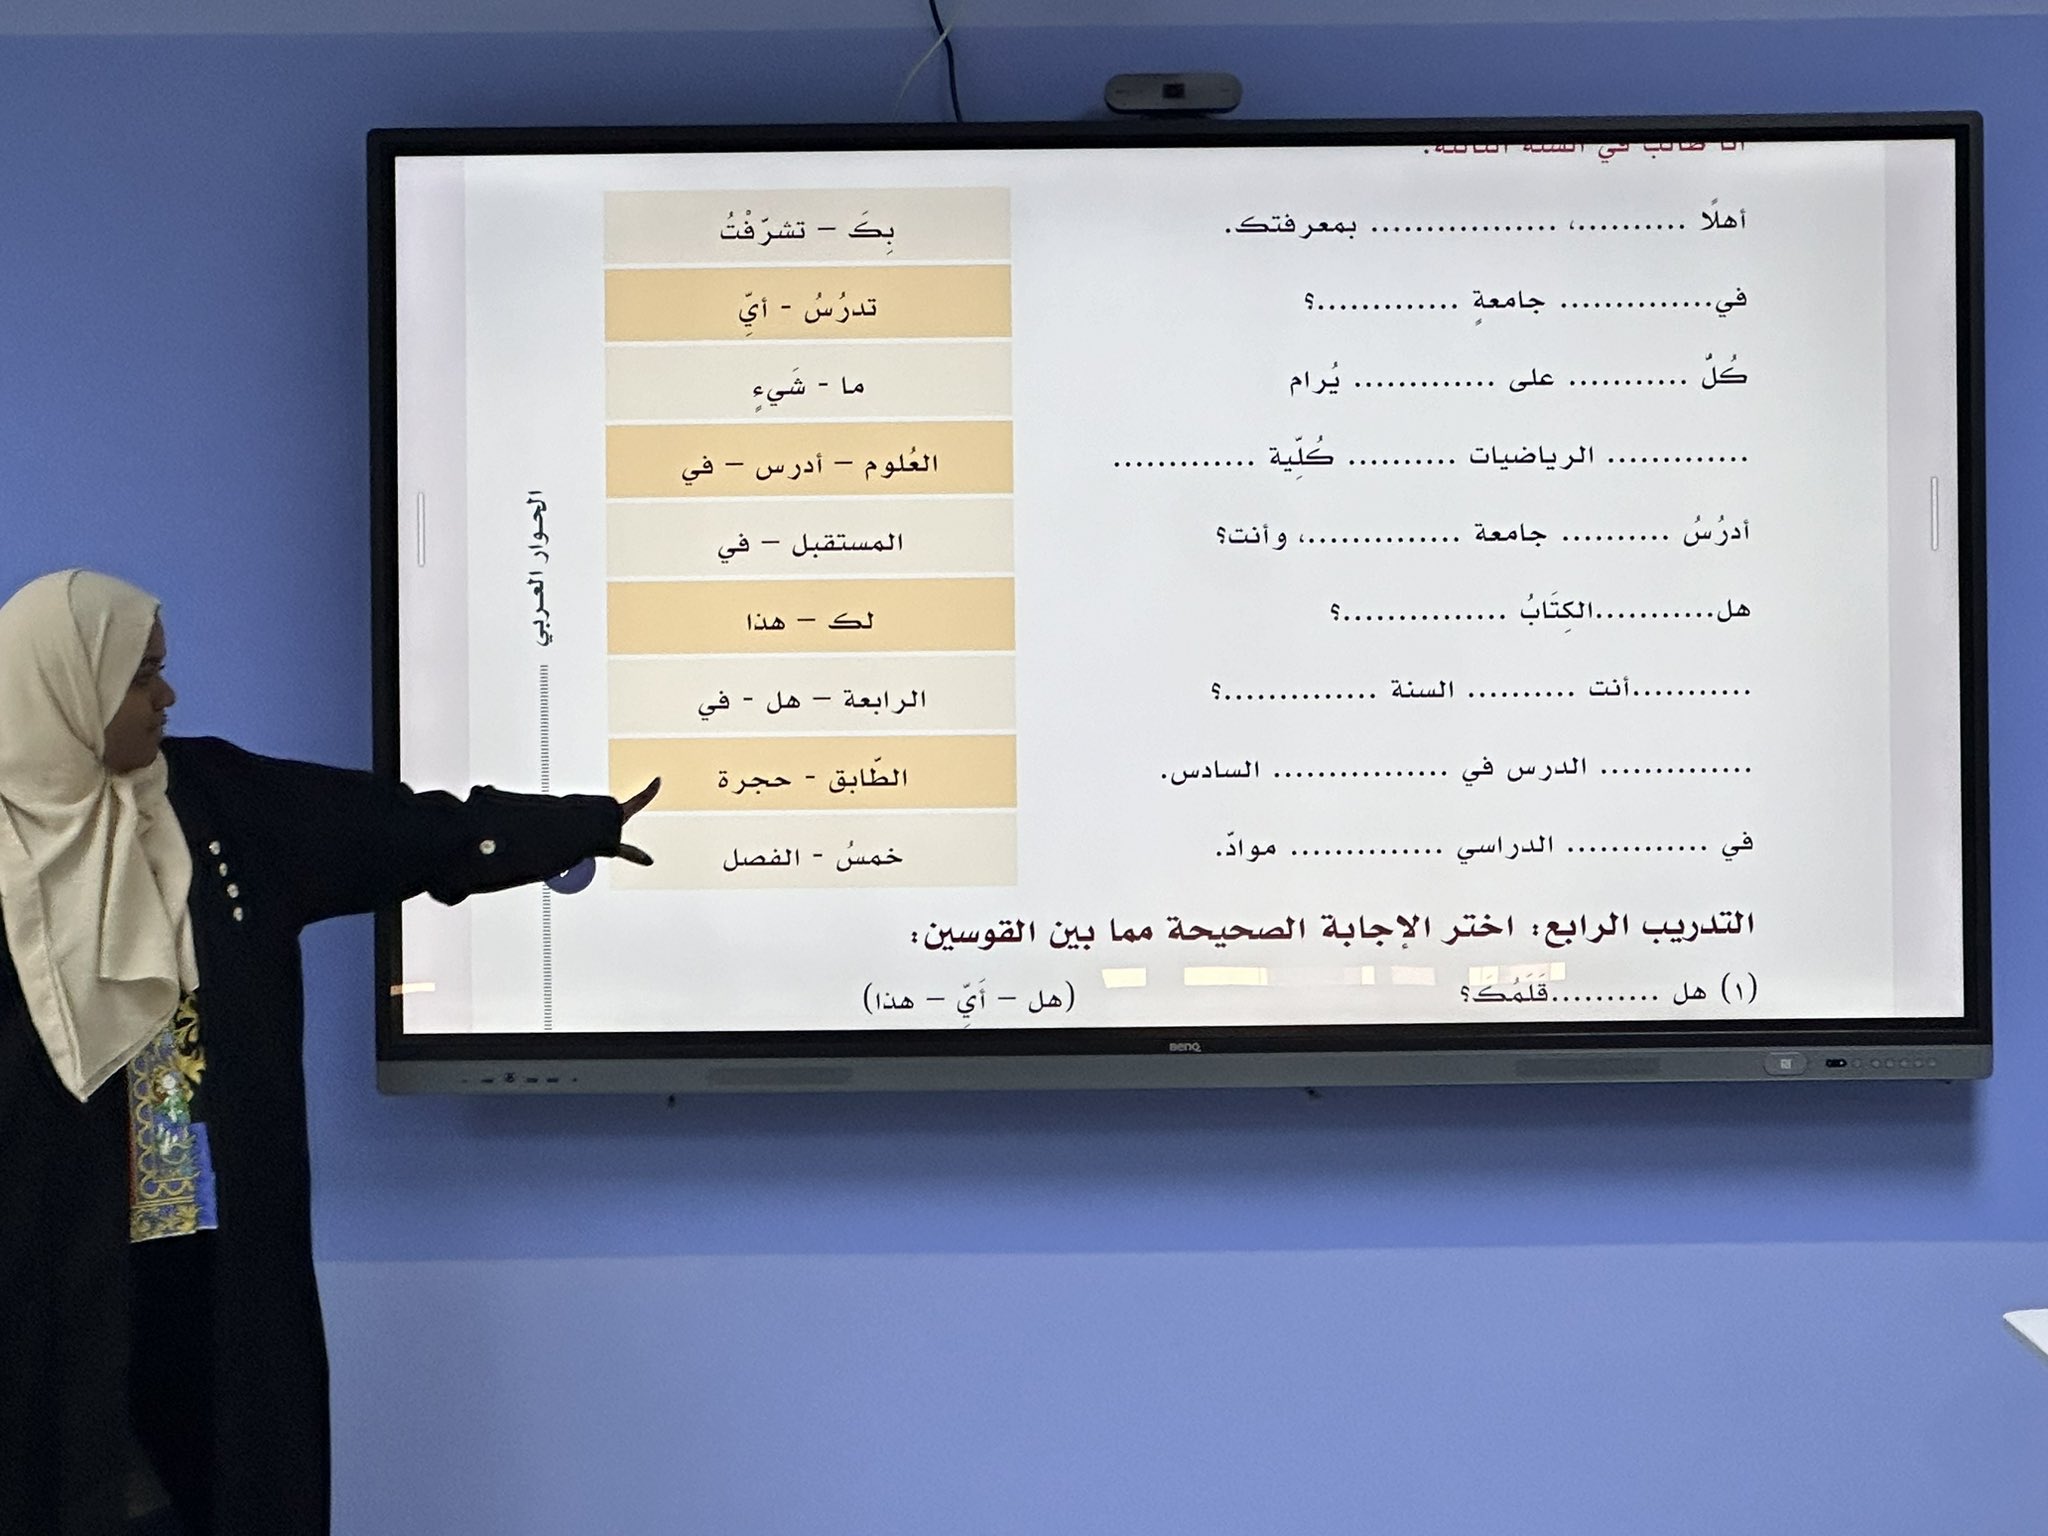 أنا طالب في السنة الثالثة.
أهلًا ...........، .................. بمعرفتك.
بِكَ – تشرّفْتُ
في............... جامعةٍ ..............؟
تدرُسُ - أيِّ
كُلُّ ............ على .............. يُرام
ما - شَيءٍ
.............. الرياضيات ........... كُلِّية ..............
العُلوم – أدرس – في
أدرُسُ ........... جامعة ...............، وأنت؟
المستقبل – في
هل............الكِتَابُ ................؟
لك – هذا
............أنت ........... السنة ...............؟
الرابعة – هل - في
............... الدرس في ................. السادس.
الطّابق - حجرة
في .............. الدراسي ............... موادّ.
خمسُ - الفصل
الحوار العربي
التدريب الرابع: اختر الإجابة الصحيحة مما بين القوسين:
(١) هل ...........قَلَمُكَ؟ (هل – أَيِّ – هذا)
BenQ